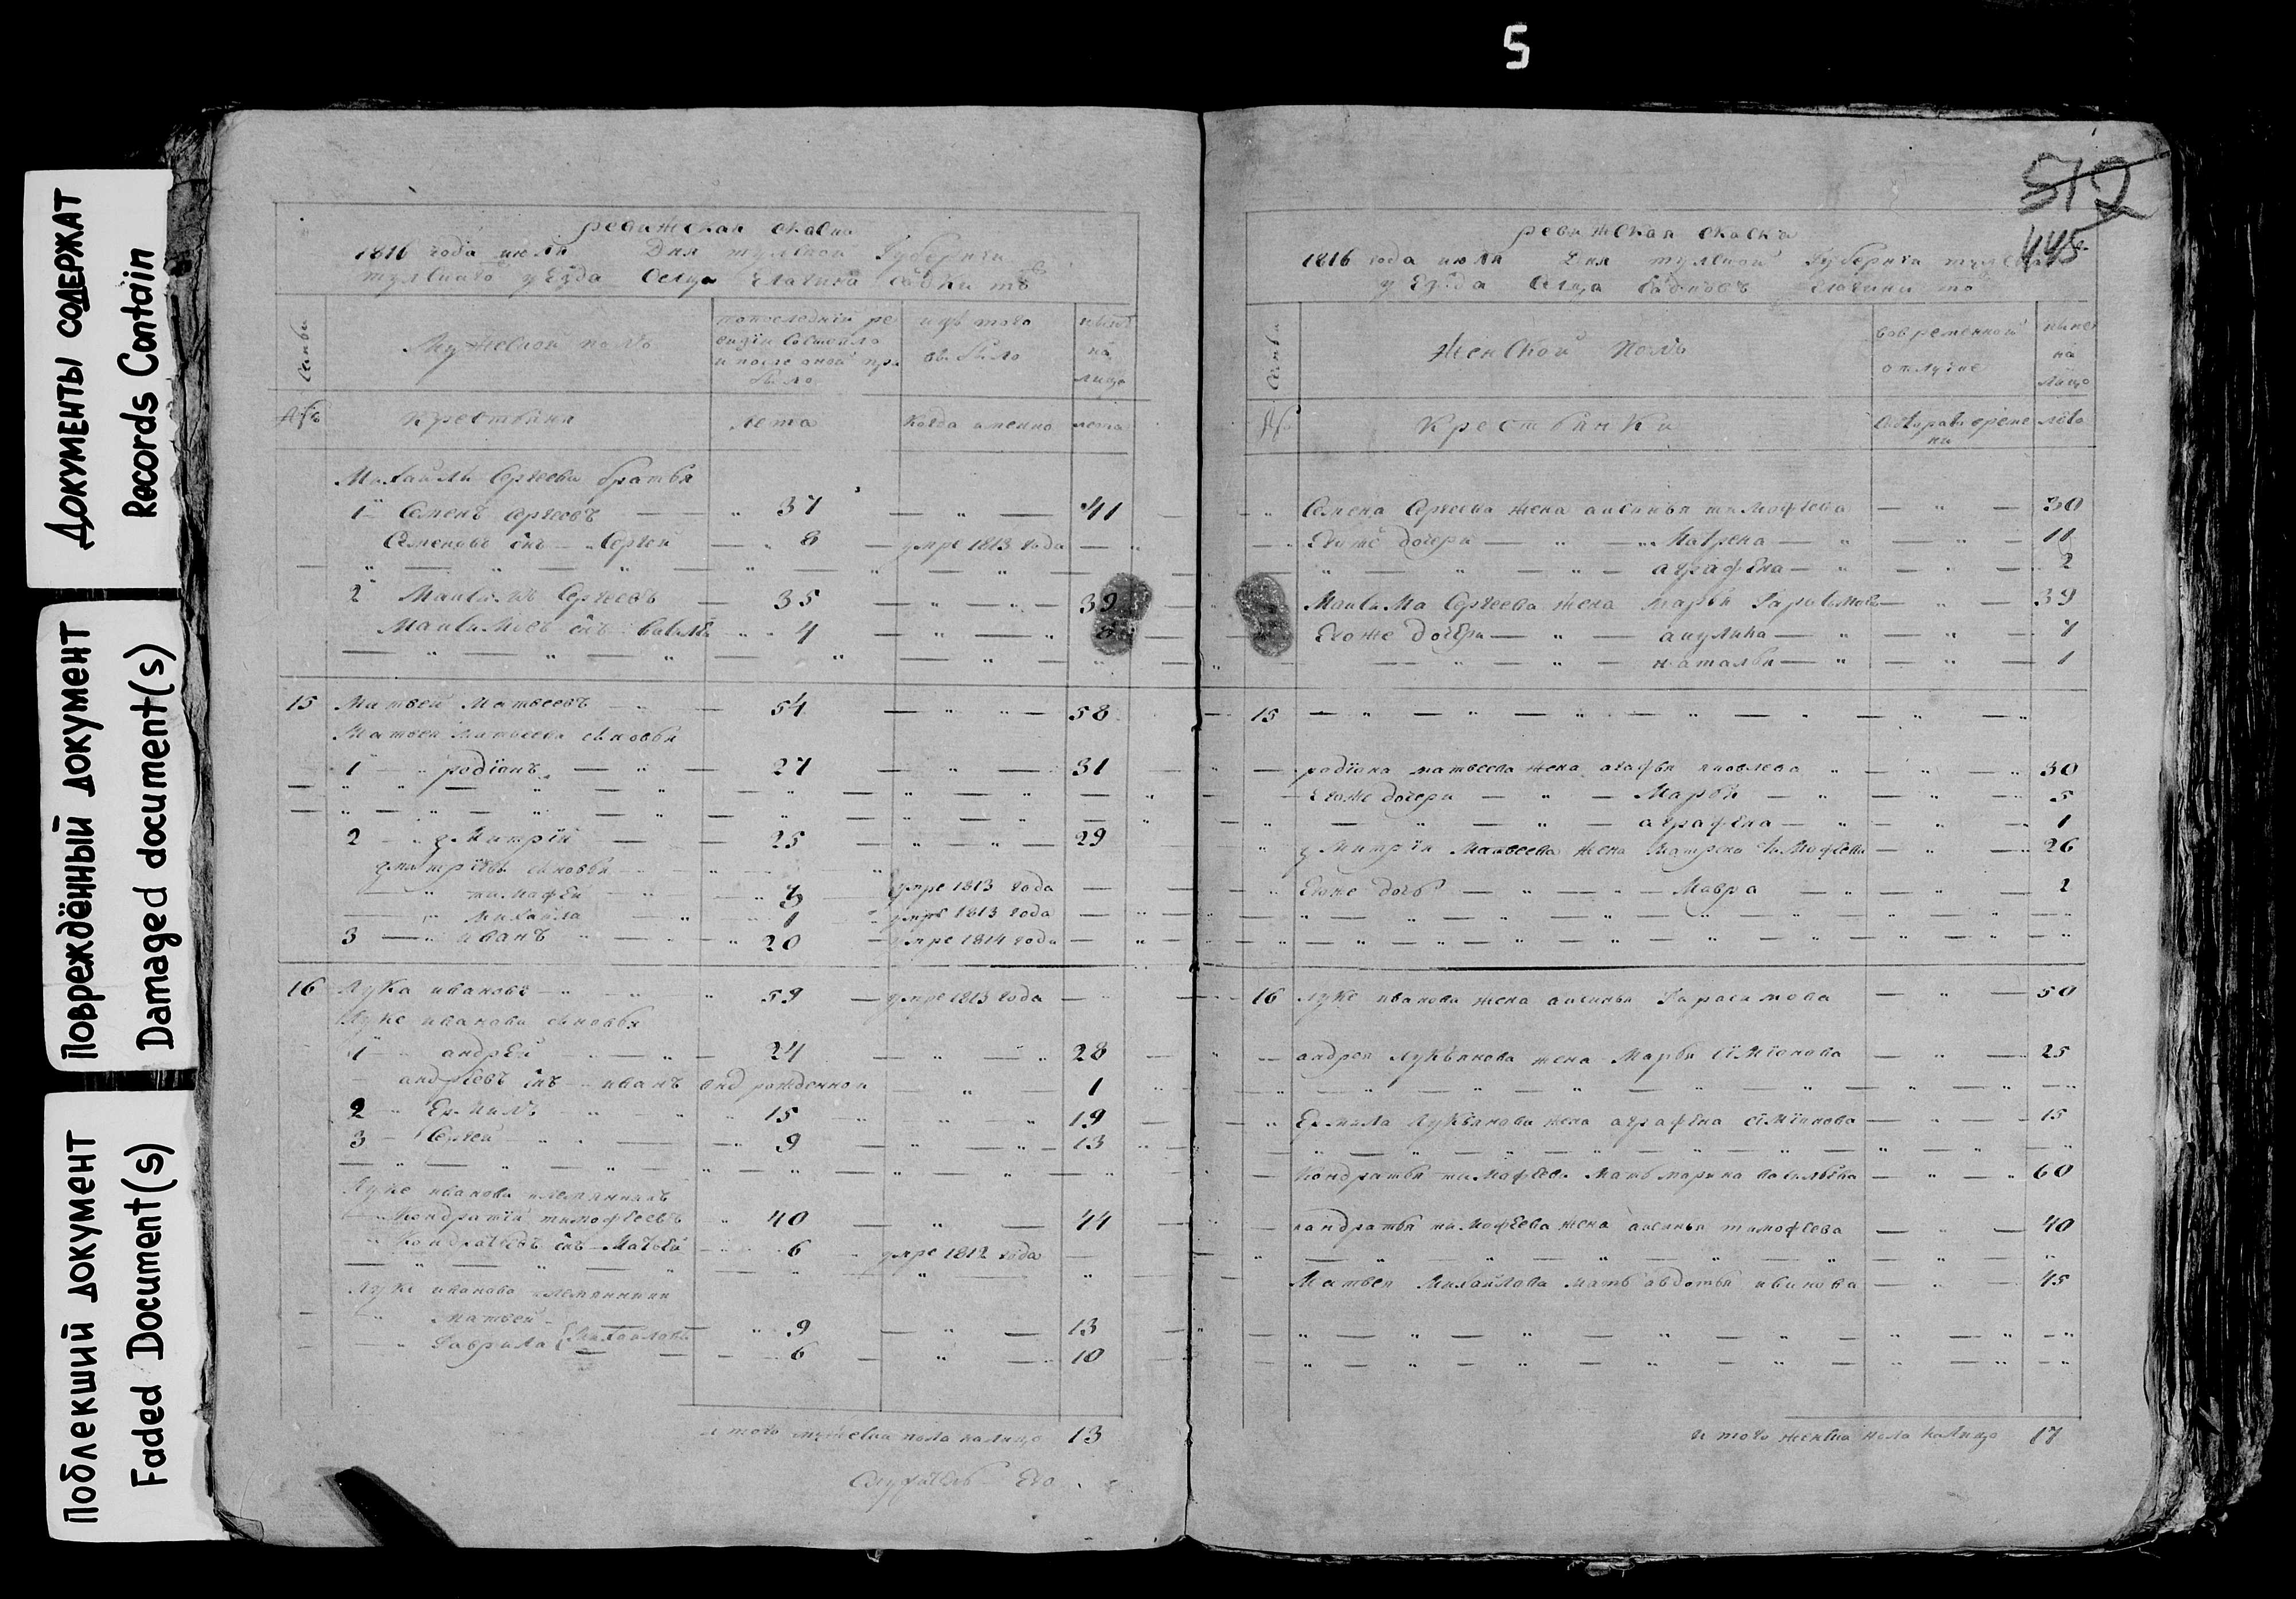 5
Документы содержат
Records Contain
Повреждённый документ
Damaged document(s)
Поблекший документ
Faded Document(s)
ревижская скаска
1816 года июля Дня тулской Губернии
тулскаго уезда Селца
Мужеской полъ
и зъ того
на
лицо
крестьяня
лета
когда именно
лета
Михайлы Сергеева братья
1 Семенъ Сергеевъ 37 41
Семеновъ снъ Сергей 8 умре 1813 года
2 Максимъ Сергеевъ 35 39
Максимовъ снъ 4 8
15 Матвей Матвеевъ 54 58
Матвея Матвеева сыновья
1 родионъ 27 31
2 дмитрий 25 29
дмитриевы сыновья
тимофей умре 1813 года
михайла 1 умре 1813 года
3 иванъ 20 умре 1814 года
16 Лука ивановъ 59 умре 1813 года
Луке иванова сыновья
1 андрей 24 28
андреевъ снъ иванъ 1
2 Ермилъ 15 19
3 Сергей 9 13
Луке иванова племянникъ
Кондратий тимофеевъ 40 44
Кондратьевъ снъ Матвей 6 умре 1812 года
Луке иванова племянники
матвей 9 13
Гаврила Михайловы 6 10
и того мужеска пола налицо 13
512
445
ревижская скаска
1816 года июля Дня тулской Губернии
уезда Селца
Женской полъ
во временной
отлучке
ныне
на
лицо
крестьянки
лета
Семена Сергеева жена аксинья тимофеева 30
Евоже дочери Матрена 11
аграфена 2
Максима Сергеева жена марья 39
Евоже дочери акулина 7
наталья 1
15
родиона матвеева жена агафья яковлева 30
Евоже дочери Марья 5
аграфена 1
дмитрия Матвеева жена Матрена тимофеева 26
Евоже дочь Мавра 2
16 луке иванова жена аксинья Гарасимова 50
андрея лукьянова жена Марья симионова 25
Ермила лукьянова жена аграфена симионова 15
Кондратья тимофеева мать марина васильева 60
кандратья тимофеева жена аксинья тимофеева 40
Матвея Михайлова мать авдотья 45
и того женска пола налицо 17